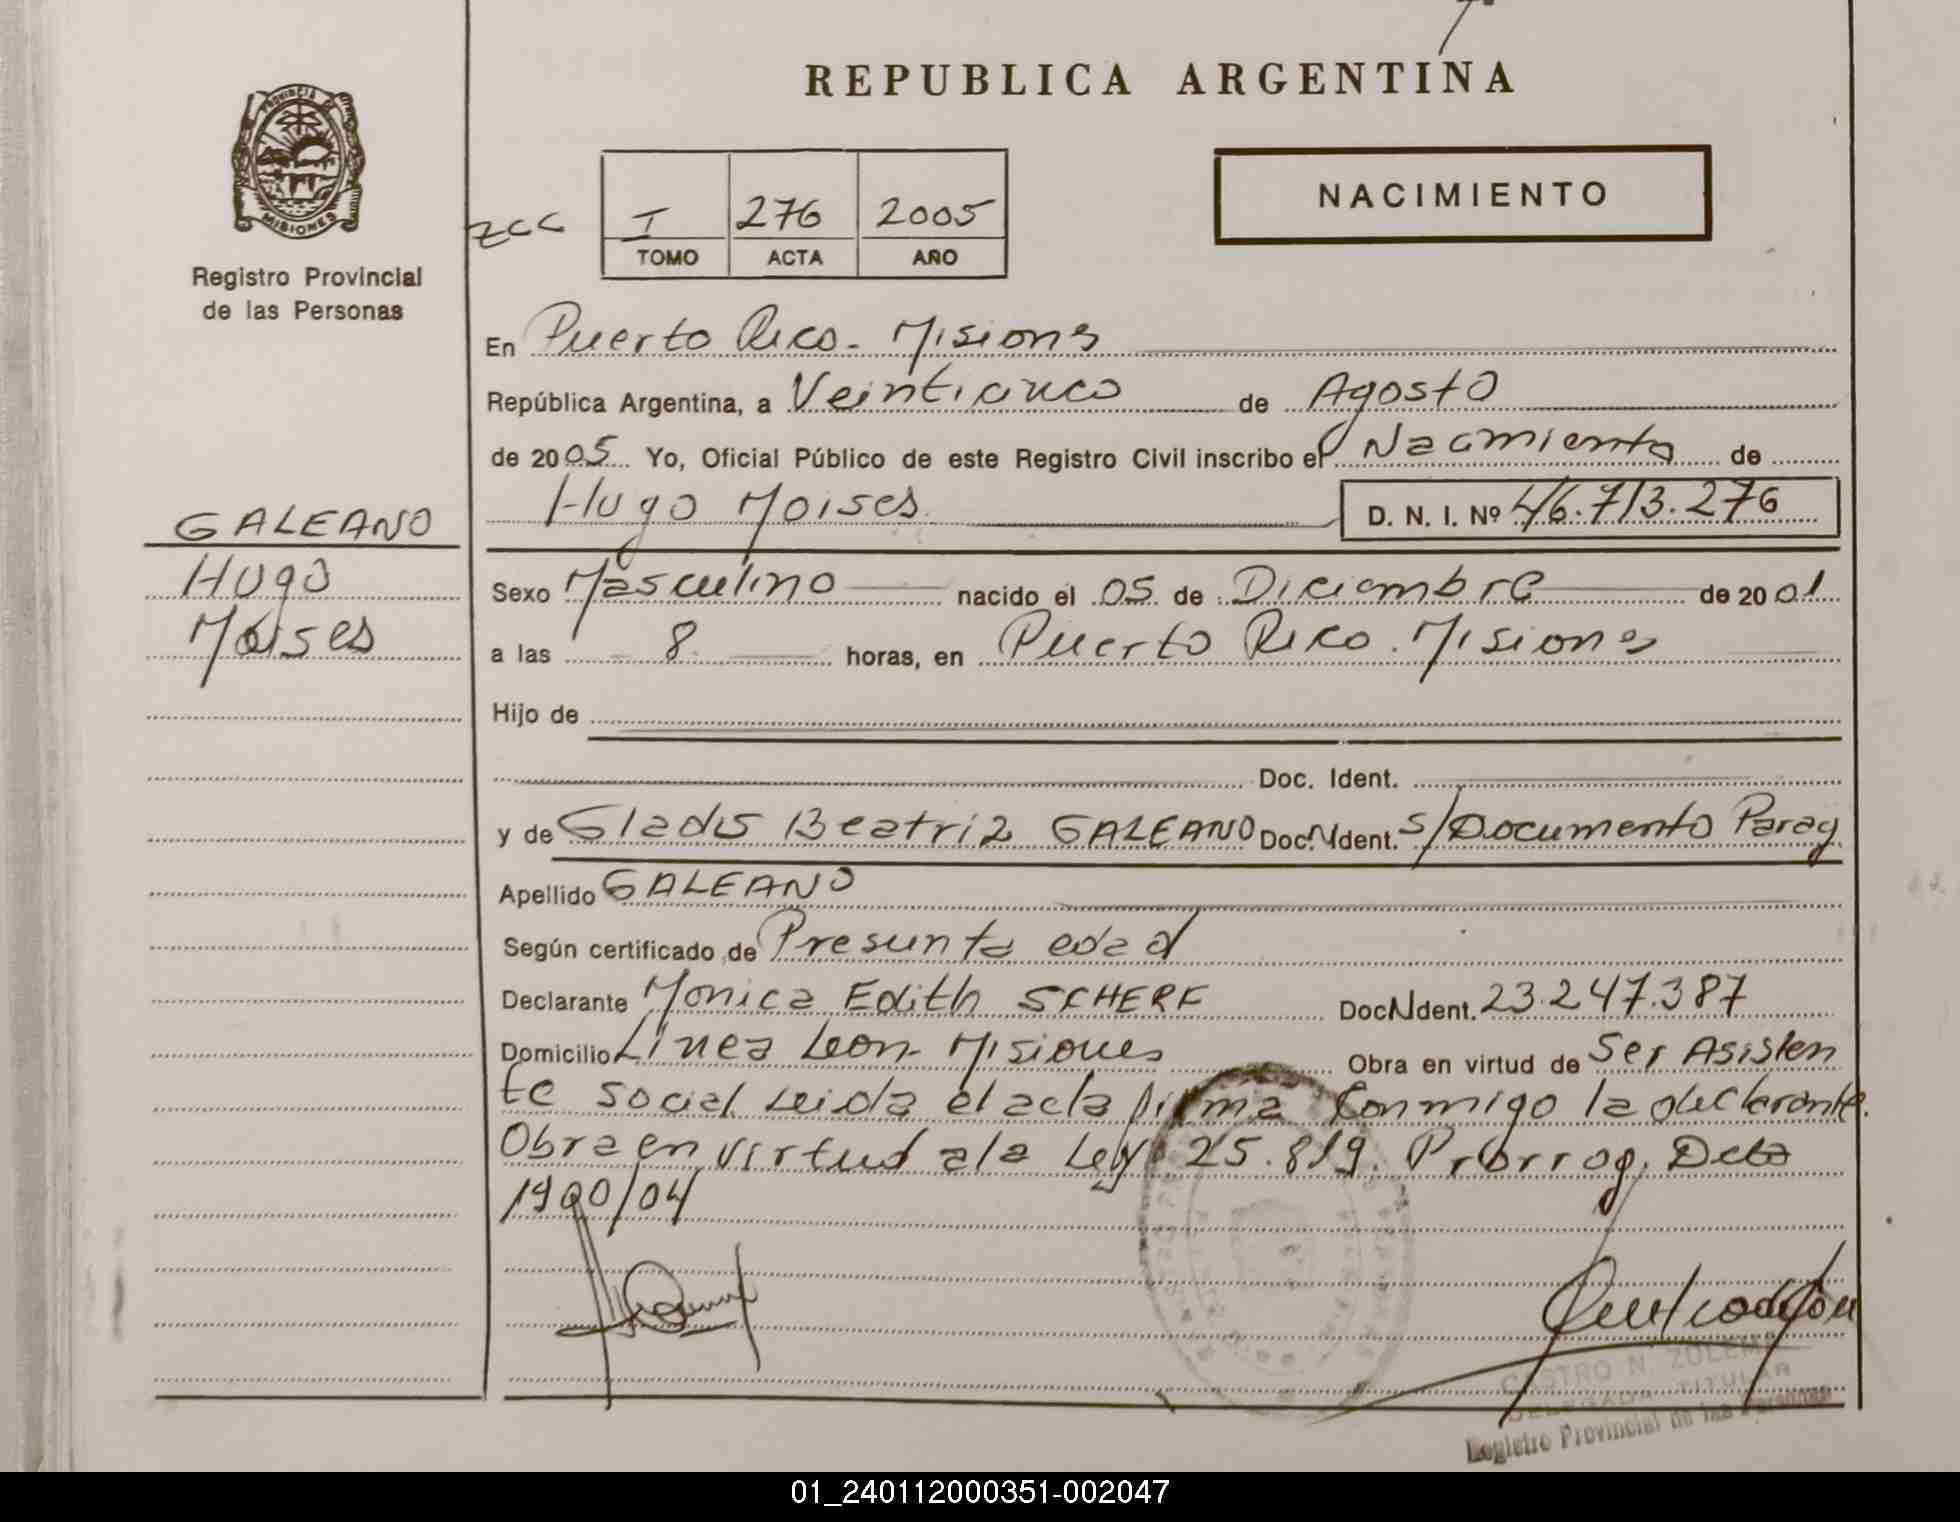 REPUBLICA ARGENTINA
PROVINCIA DE
MISIONES
Registro Provincial
de las Personas
zcc
I 276 2005
TOMO ACTA AÑO
NACIMIENTO
En Puerto Rico - Misiones
República Argentina, a Veinticinco de Agosto
de 2005 Yo, Oficial Público de este Registro Civil inscribo el Nacimiento de
Hugo Moises D. N. I. Nº 46.713.276
GALEANO
Hugo
Moises
Sexo Masculino nacido el 05 de Diciembre de 2001
a las 8 horas, en Puerto Rico. Misiones
Hijo de
Doc. Ident.
y de Gladis Beatriz GALEANO Doc. N Ident. s/Documento Parag
Apellido GALEANO
Según certificado de Presunta edad
Declarante Monica Edith SCHERF Doc N Ident. 23.247.387
Domicilio Línea Leon - Misiones Obra en virtud de Ser Asisten
te social Leida el acta firma Conmigo la declarante.
Obra en virtud a la Ley 25.819. Prorrog. Dcto
1900/04
CASTRO N. ZULEMA
DELEGADA TITULAR
Registro Provincial de las Personas
01_240112000351-002047